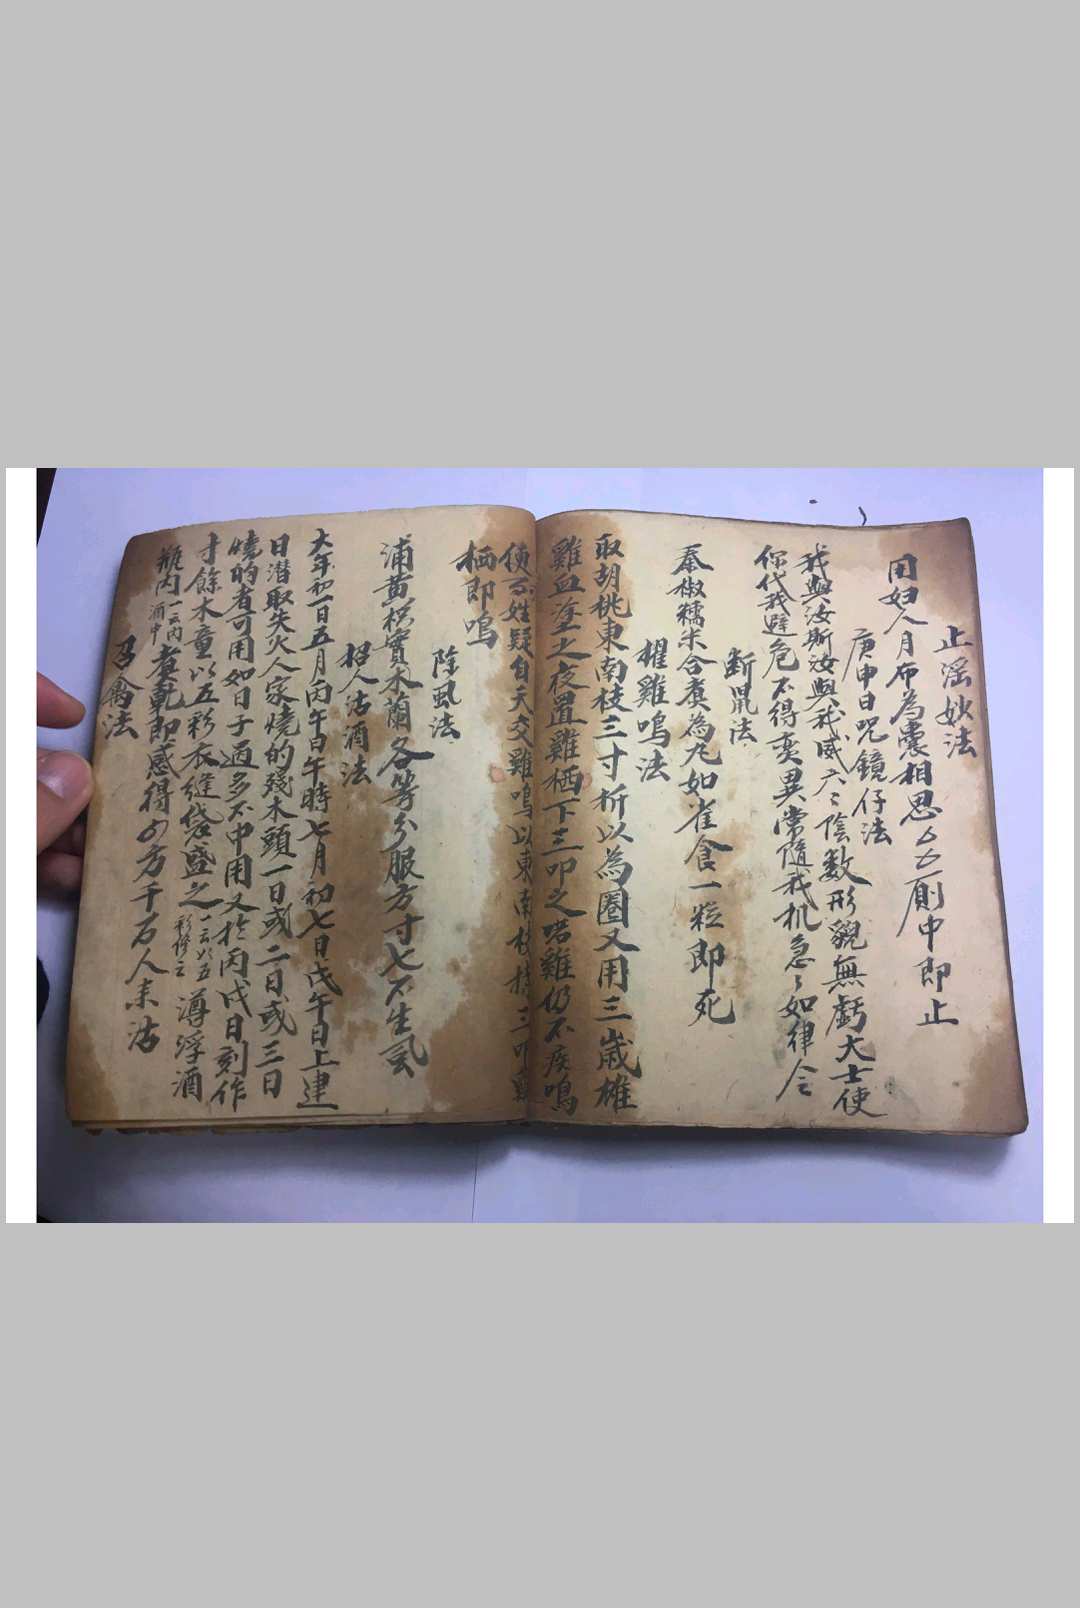 止淫妙法
用妇人月布為囊相思厶厶厠中即止
庚申日咒鏡仔法
我與汝斯汝與我威六六陰数形貌無虧大士使
你代我避危不得变異常隨我机急急如律令
断鼠法
秦椒糯米合煮為丸如雀食一粒即死
擢雞鳴法
取胡桃東南枝三寸析以為圈又用三歲雄
雞血塗之夜置雞栖下三叩之喏雞仍不疾鳴
使百姓疑自天交雞鳴以東南枝
栖即鳴
除虱法
浦黄枳實木蘭各等分服方寸七不生虱
招人沽酒法
大年初一日五月丙午日午時七月初七日戊午日上建
日潜取失火人家燒的殘木頭一日或二日或三日
燒的者可用如日子過多不中用又於丙戊日刻作
寸餘木童以五彩衣縫袋盛之一云以五彩修之溥浮酒
瓶内一云内酒中煮乾即感得四方千万人来沽
召禽法